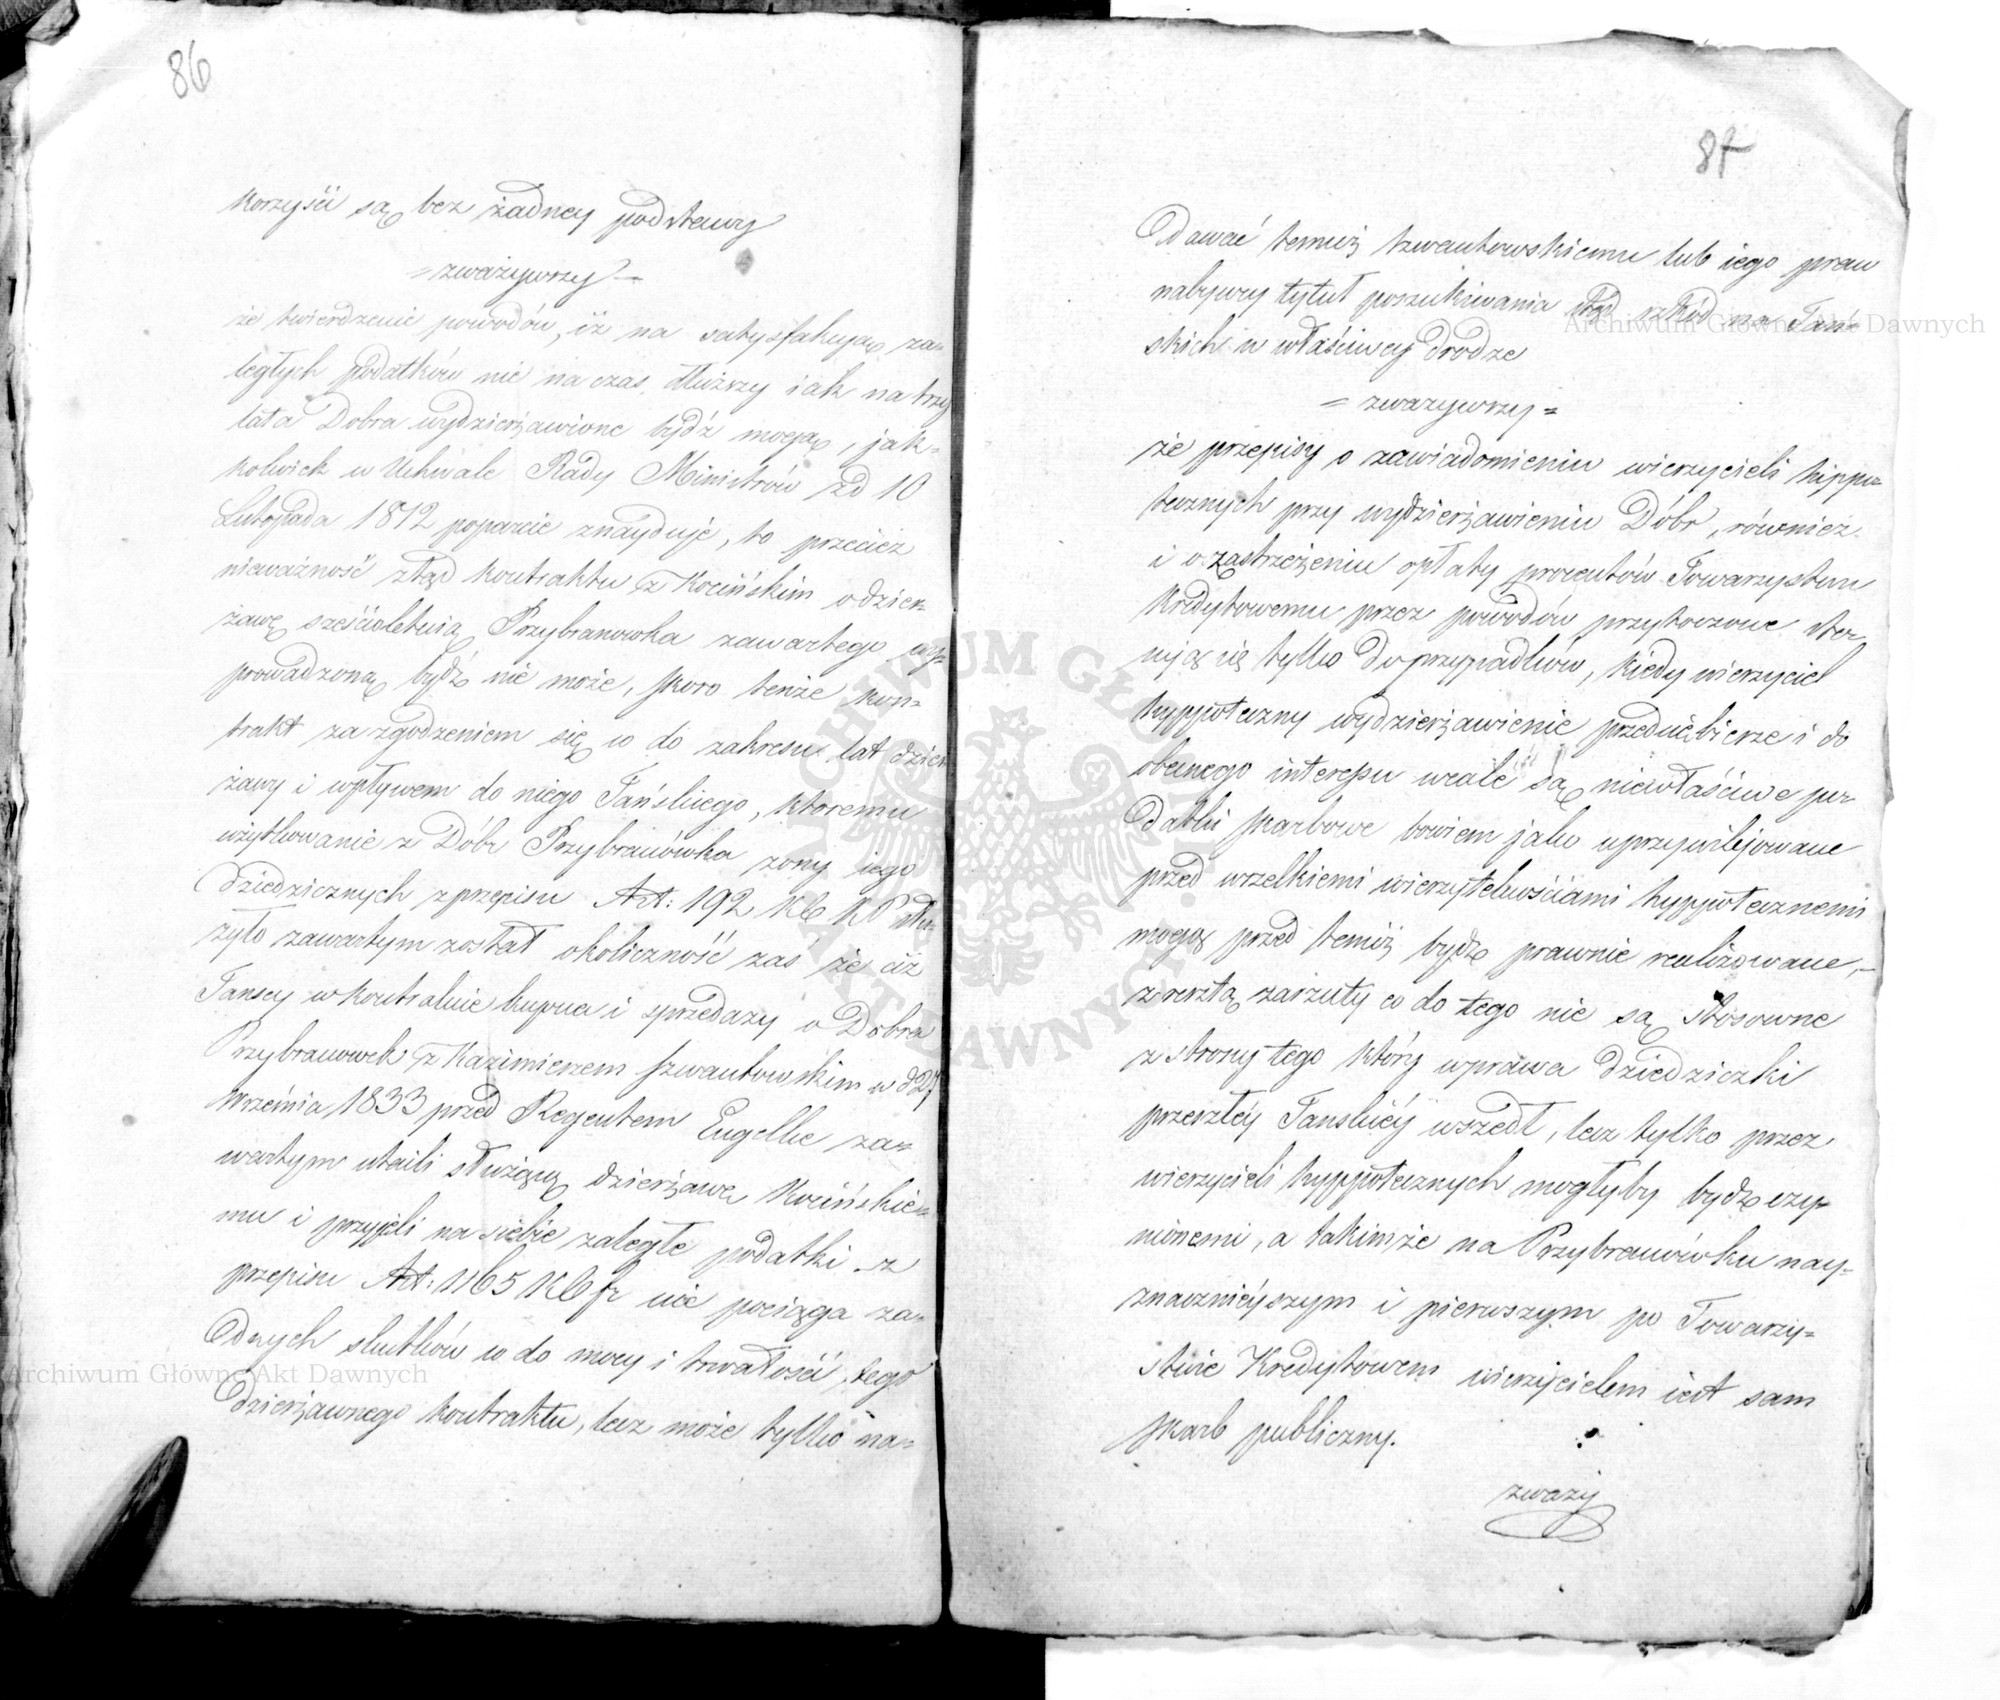 86
korzyści są bez żadney podstawy
= zważywszy =
że twierdzenie powodów, iż na satysfakcyą za=
ległych podatków nie na czas dłuższy iak na trzy
lata Dobra wydzierżawione bydź mogą, jak=
kolwiek w Uchwale Rady Ministrów zd 10
Listopada 1812 poparcie znayduje, to przecież
nieważność ztąd kontraktu z Kocińskim o dzier=
żawę sześcioletnią Przybranowka zawartego wy=
prowadzoną bydź nie może, skoro tenże kon=
trakt za zgodzeniem się co do zakresu lat dzier
żawy i wpływem do niego Tańskiego, ktoremu
użytkowanie z Dóbr Przybranówka żony iego
dziedzicznych z przepisu Art: 192 KC KP słu=
żyło zawartym został okoliczność zaś że ciż
Tanscy w kontrakcie kupna i sprzedazy o Dobra
Przybranowek z Kazimierzem Szwantowskim w d 27
Września 1833 przed Regentem Engelke za=
wartym utaili służącą dzierżawę Kocińskie=
mu i przyjęli na siebie zaległe podatki z
przepisu Art: 1165 KC fr nie pociąga ża=
dnych skutków co do mocy i trwałości tego
dzierżawnego kontraktu, lecz może tylko na=
87
dawać temuż Szwantowskiemu lub iego praw
nabywcy tytuł poszukiwania ztąd szkód na Tań=
skich w właściwey drodze
= zważywszy =
że przepisy o zawiadomieniu wierzycieli hippo=
tecznych przy wydzierżawieniu Dóbr, również
i o zastrzeżeniu opłaty procentów Towarzystwu
Kredytowemu przez powodów przytoczone stosu
nyią się tylko do przypadków, kiedy wierzyciel
hyppoteczny wydzierżawienie przedsiebierze i do
obecnego interessu wcale są niewłaściwe po=
datki skarbowe bowiem jako uprzywilejowane
przed wszelkiemi wierzytelnościami hyppotecznemi
mogą przed temiż bydź prawnie realizowane,
zresztą zarzuty co do tego nie są stosowne
z strony tego który w prawa dziedziczki
przeszłéy Tanskiéy wszedł, lecz tylko przez
wierzycieli hyppotecznych mogłyby bydź czy=
nionemi, a takimże na Przybranówku nay=
znacznieyszym i pierwszym po Towarzy=
stwie Kredytowem wierzycielem iest sam
skarb publiczny.
zważy
Archiwum Główne Akt Dawnych
Archiwum Główne Akt Dawnych
ARCHIWUM GŁÓWNE AKT DAWNYCH